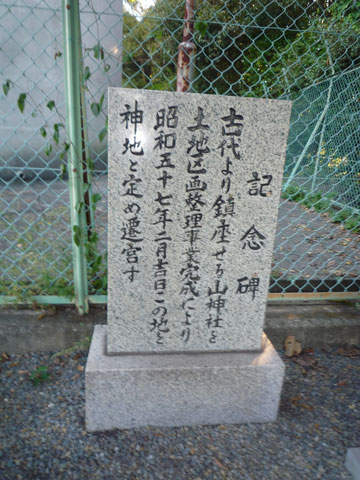 記念碑
古代より鎮座せる山神社を
土地区画整理事業完成により
昭和五十七年二月吉日この地を
神地と定め遷宮す